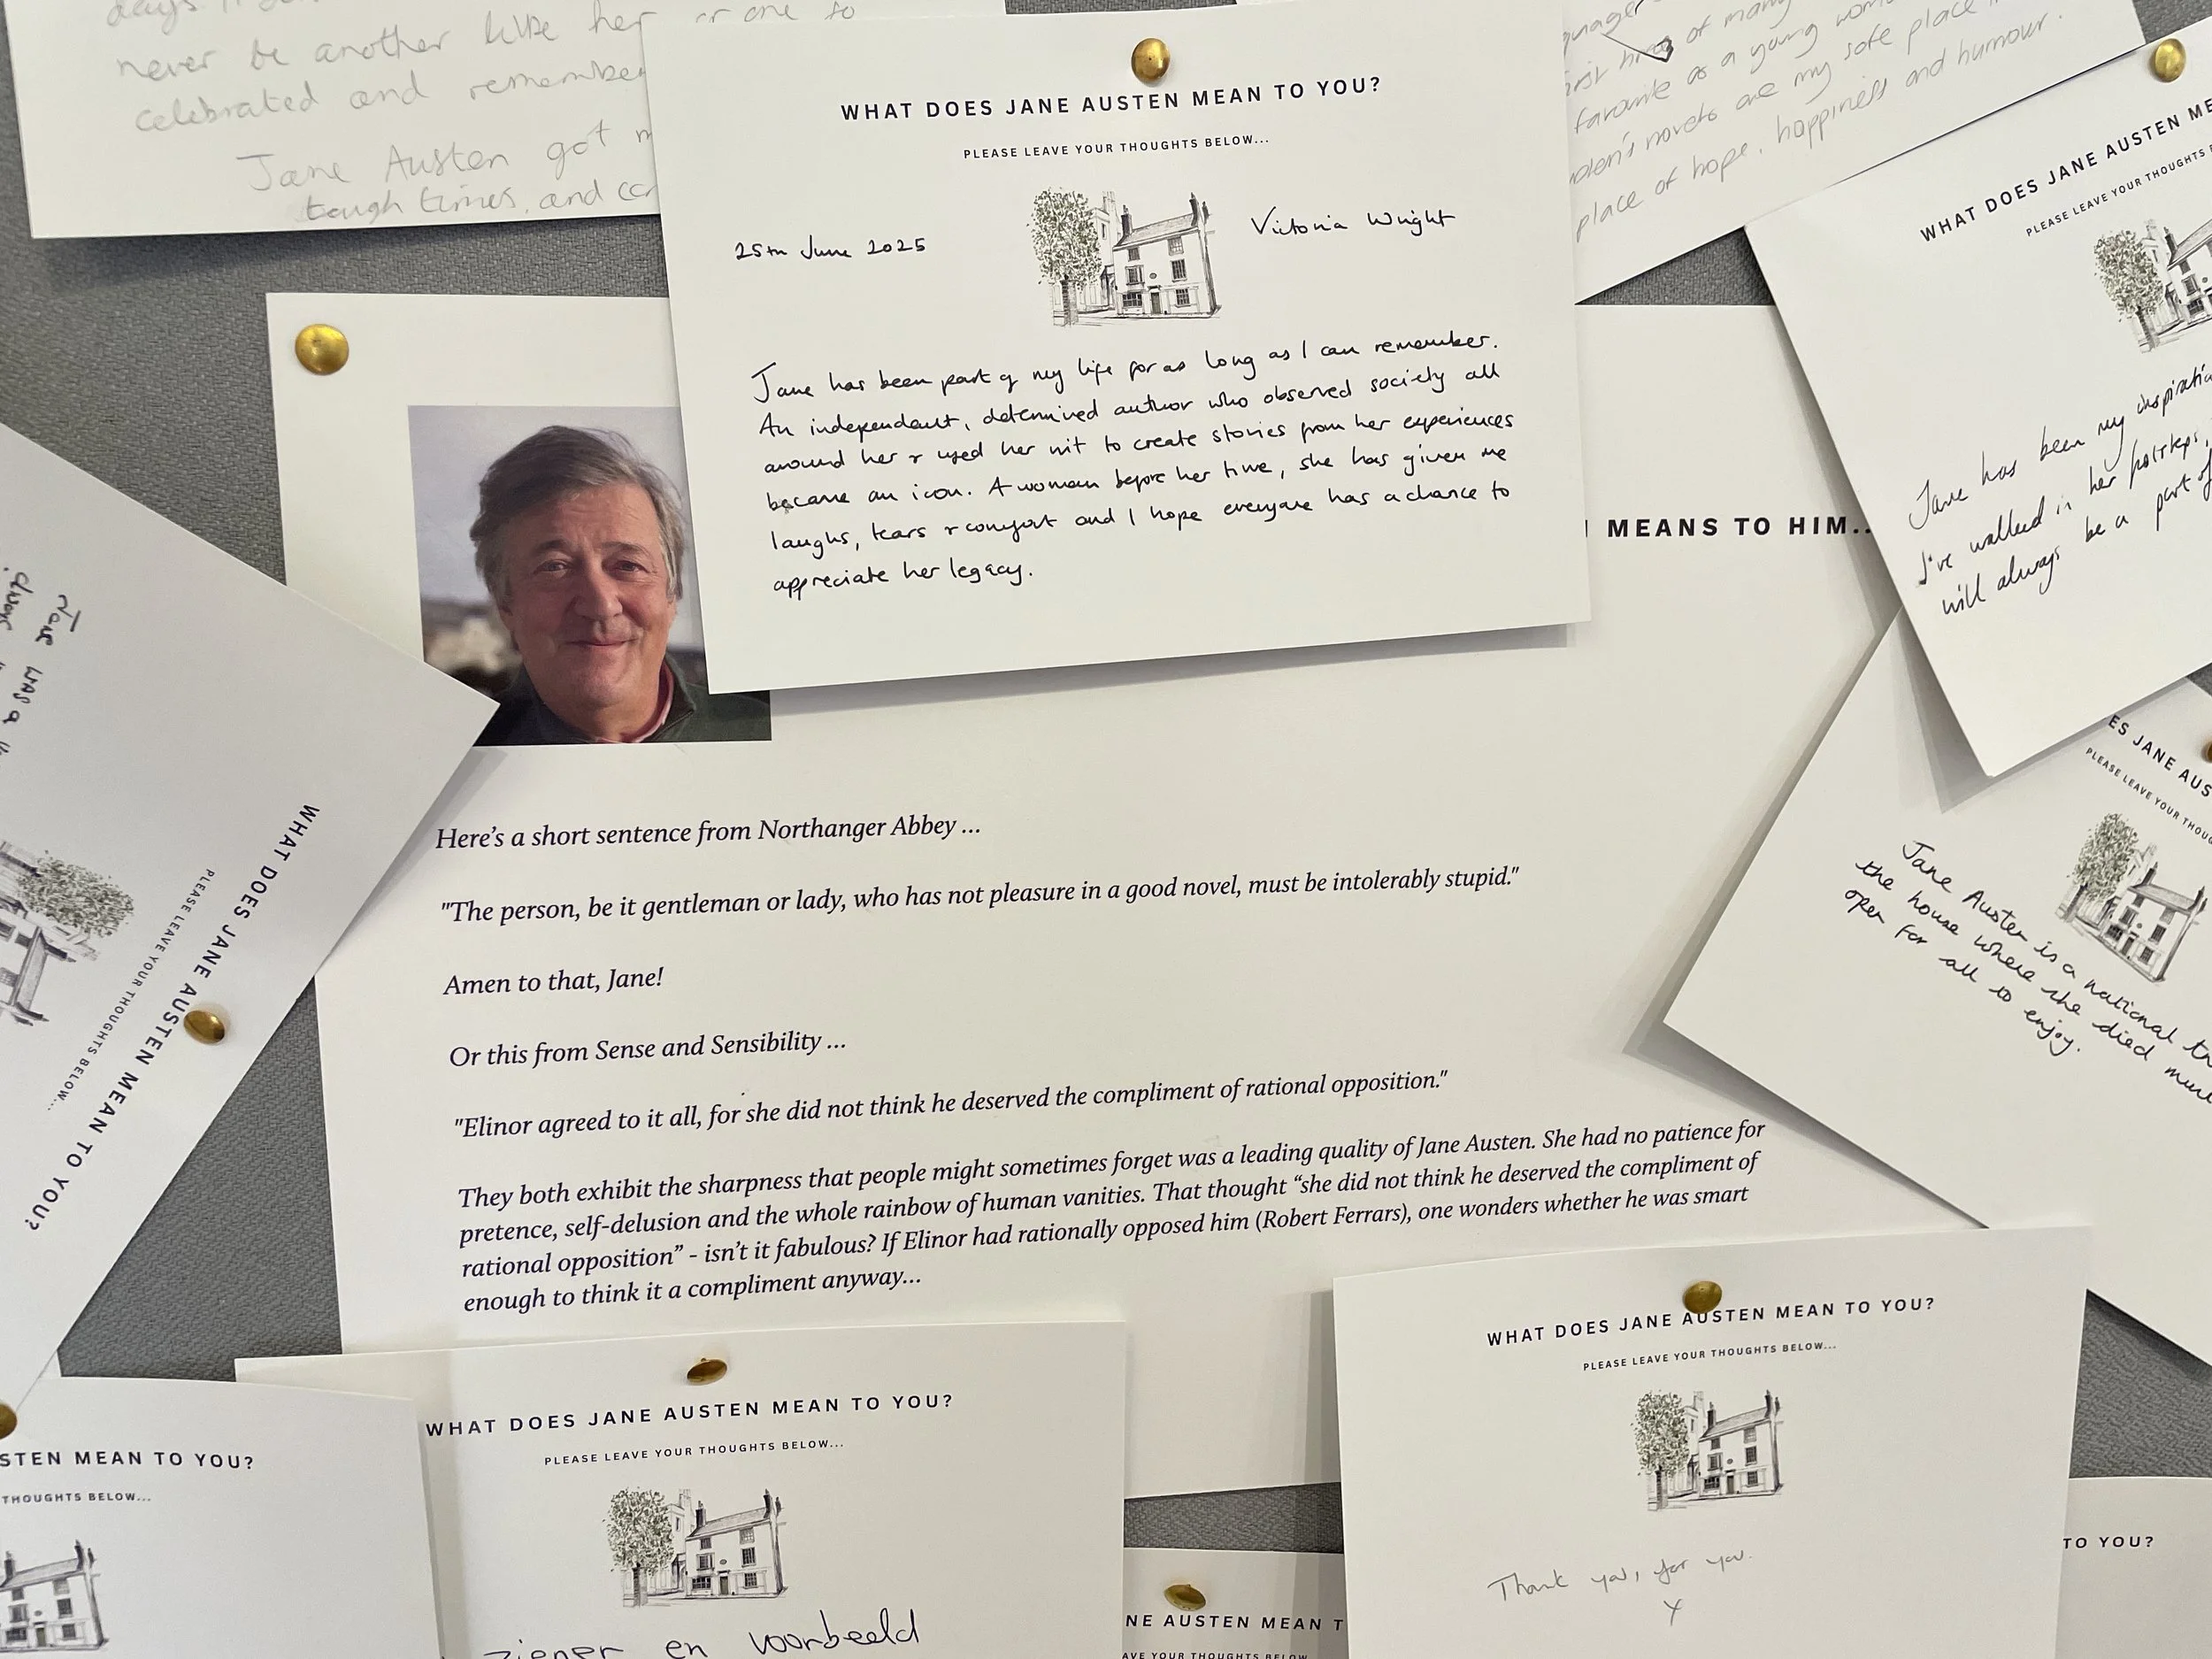 days.
never be another like her or one to
celebrated and remember
Jane Austen got
tough times, and
WHAT DOES JANE AUSTEN MEAN TO YOU?
PLEASE LEAVE YOUR THOUGHTS BELOW...
25th June 2025
Victoria Wright
Jane has been part of my life for as long as I can remember.
An independent, determined author who observed society all
around her & used her wit to create stories from her experiences
became an icon. A woman before her time, she has given me
laughs, tears & comfort and I hope everyone has a chance to
appreciate her legacy.
of many
favourite as a young
novels are my safe place
place of hope, happiness and humour.
WHAT DOES JANE AUSTEN ME
PLEASE LEAVE YOUR THOUGHTS
Jane has been my inspiratio
I've walked in her footsteps,
will always be a part of
MEANS TO HIM...
Here's a short sentence from Northanger Abbey ...
"The person, be it gentleman or lady, who has not pleasure in a good novel, must be intolerably stupid."
Amen to that, Jane!
Or this from Sense and Sensibility ...
"Elinor agreed to it all, for she did not think he deserved the compliment of rational opposition."
They both exhibit the sharpness that people might sometimes forget was a leading quality of Jane Austen. She had no patience for
pretence, self-delusion and the whole rainbow of human vanities. That thought “she did not think he deserved the compliment of
rational opposition” - isn't it fabulous? If Elinor had rationally opposed him (Robert Ferrars), one wonders whether he was smart
enough to think it a compliment anyway...
WHAT DOES JANE AUSTEN MEAN TO YOU?
PLEASE LEAVE YOUR THOUGHTS BELOW...
Jane was a
always
ES JANE AUS
PLEASE LEAVE YOUR THOUG
Jane Austen is a national tr
the house where she died mu
open for all to enjoy.
STEN MEAN TO YOU?
THOUGHTS BELOW...
WHAT DOES JANE AUSTEN MEAN TO YOU?
PLEASE LEAVE YOUR THOUGHTS BELOW...
ziener en voorbeeld
NE AUSTEN MEAN T
AVE YOUR THOUGHTS BELOW
WHAT DOES JANE AUSTEN MEAN TO YOU?
PLEASE LEAVE YOUR THOUGHTS BELOW...
Thank you, for you.
x
TO YOU?